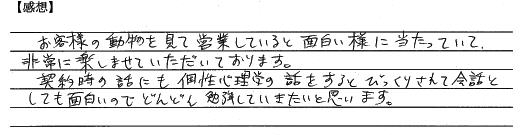 【感想】
お客様の動物を見て営業していると面白い様に当たっていて、
非常に楽しませていただいております。
契約時の話にも個性心理学の話をするとびっくりされて会話と
しても面白いのでどんどん勉強していきたいと思います。